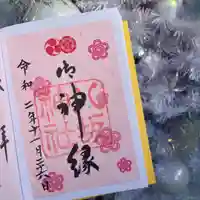 御神縁
令和二年十一月二十六日
拝